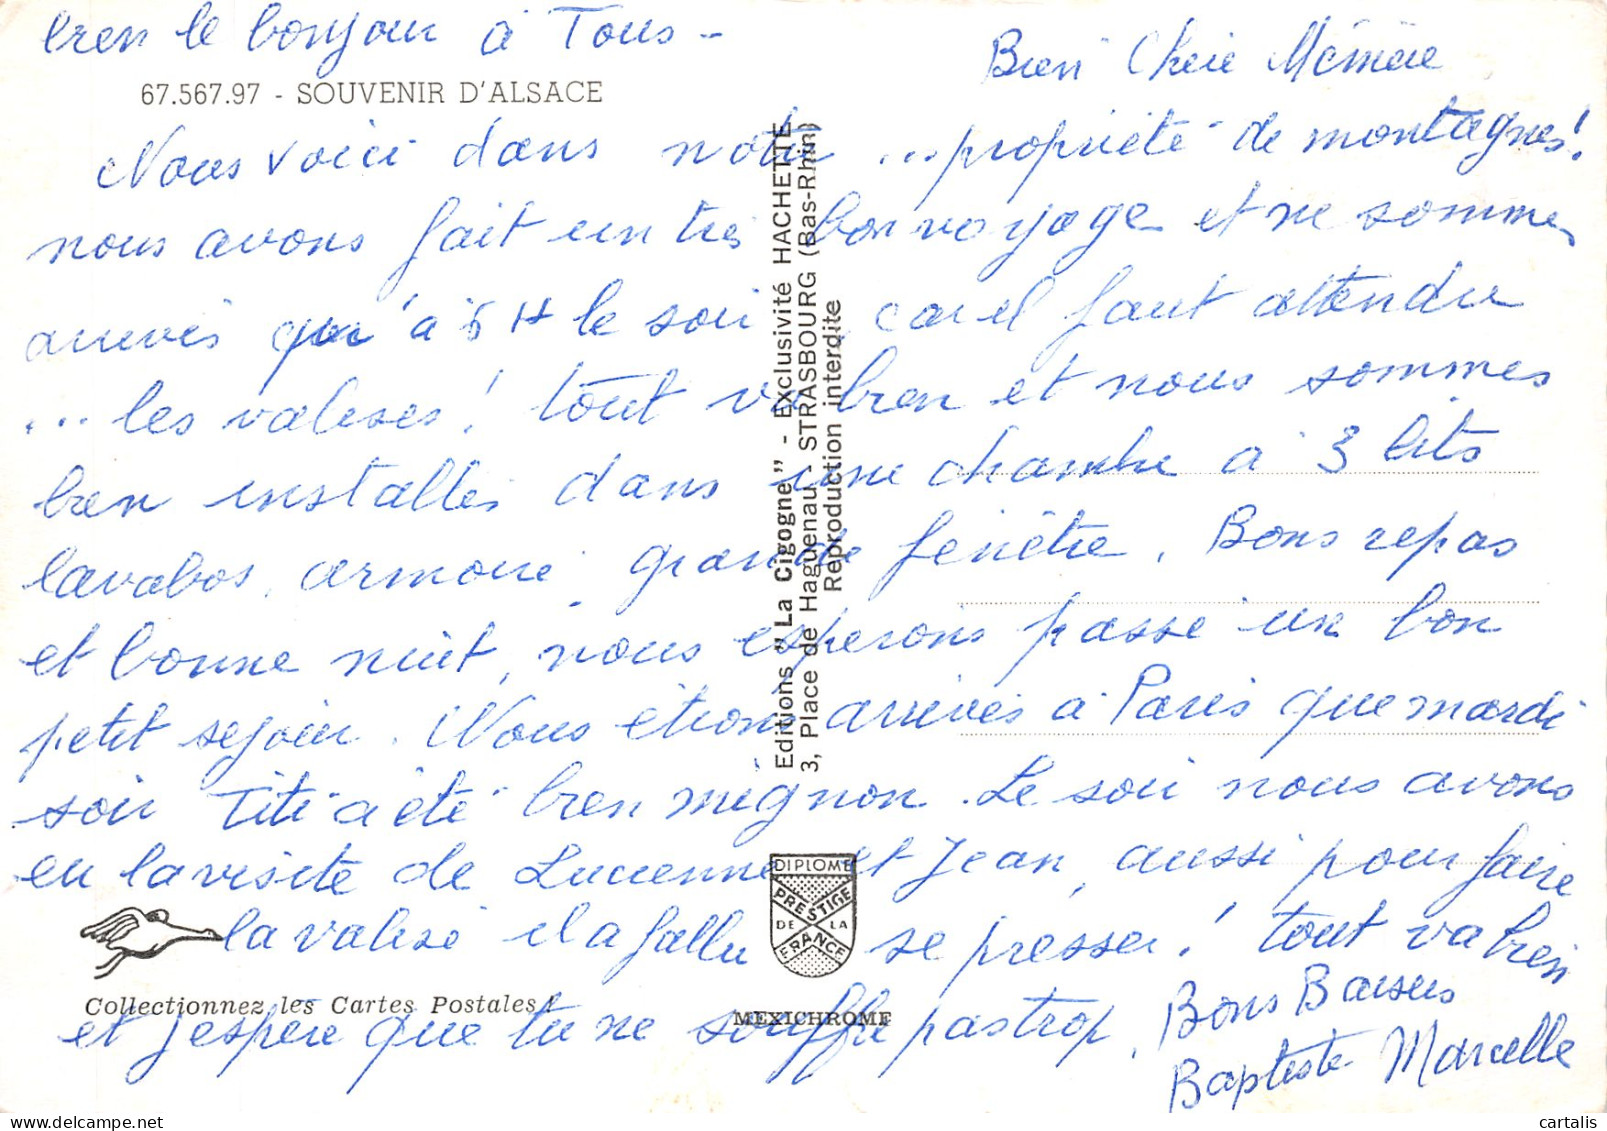 bien le bonjour à Tous -
Bien Chère Mémère
67.567.97 - SOUVENIR D'ALSACE
Nous voici dans notre ... propriété de montagnes!
nous avons fait un très bon voyage et ne sommes
arrivés qu'à 5 H le soir, car il faut attendre
... les valises! tout va bien et nous sommes
bien installés dans une chambre à 3 lits
lavabos, armoire, grande fenêtre. Bons repas
et bonne nuit, nous esperons passé un bon
petit sejour. Nous étions arrivés à Paris que mardi
soir Titi a été bien mignon. Le soir nous avons
eu la visite de Lucienne et Jean, aussi pour faire
la valise il a fallu se presser! tout va bien
et j'espère que tu ne souffre pas trop. Bons Baisers
Baptiste Marcelle
Editions "La Cigogne" - Exclusivité HACHETTE
3, Place de Haguenau - STRASBOURG (Bas-Rhin)
Reproduction interdite
DIPLOME
PRESTIGE
DE LA
FRANCE
Collectionnez les Cartes Postales!
MEXICHROME
cartalis